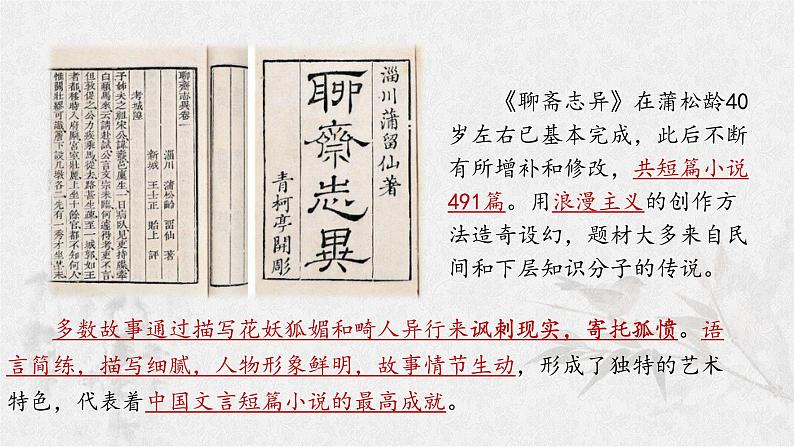 聊斋志異卷一
考城隍
淄川 蒲松齡 留仙 著
新城 王士正 貽上 評
子姊夫之祖宋公諱燾邑廩生一日病臥見吏持牒牽
白顛馬來云請赴試公言文宗未臨何遽得考吏不言
但敦促之公力疾乘馬從去路甚生疎至一城郭如王
者都移時入府廨宮室壯麗上坐十餘官都不知何人
惟關壯繆可識簷下設几墩各二先有一秀才坐其末
淄川蒲留仙著
聊齋志異
青柯亭開彫
《聊斋志异》在蒲松龄40
岁左右已基本完成，此后不断
有所增补和修改，共短篇小说
491篇。用浪漫主义的创作方
法造奇设幻，题材大多来自民
间和下层知识分子的传说。
多数故事通过描写花妖狐媚和畸人异行来讽刺现实，寄托孤愤。语
言简练，描写细腻，人物形象鲜明，故事情节生动，形成了独特的艺术
特色，代表着中国文言短篇小说的最高成就。